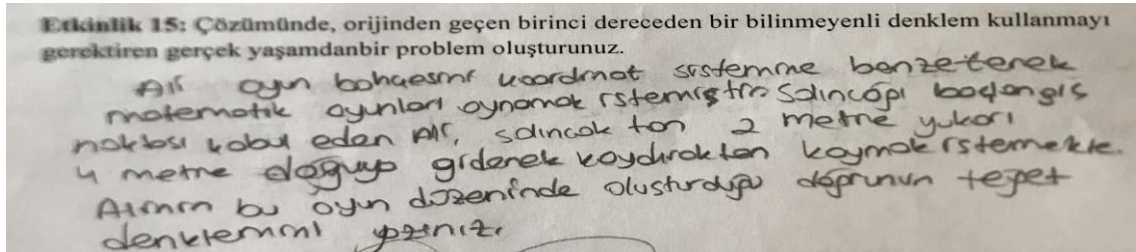 Etkinlik 15: Çözümünde, orijinden geçen birinci dereceden bir bilinmeyenli denklem kullanmayı
gerektiren gerçek yaşamdanbir problem oluşturunuz.
Ali oyun bahçesini koordinat sistemine benzeterek
matematik oyunları oynamak istemiştir. Salıncağı başlangıç
noktası kabul eden Ali, salıncaktan 2 metre yukarı
4 metre doğuya giderek kaydıraktan kaymak istemekte.
Alinin bu oyun düzeninde oluşturduğu doğrunun
denklemini yazınız.